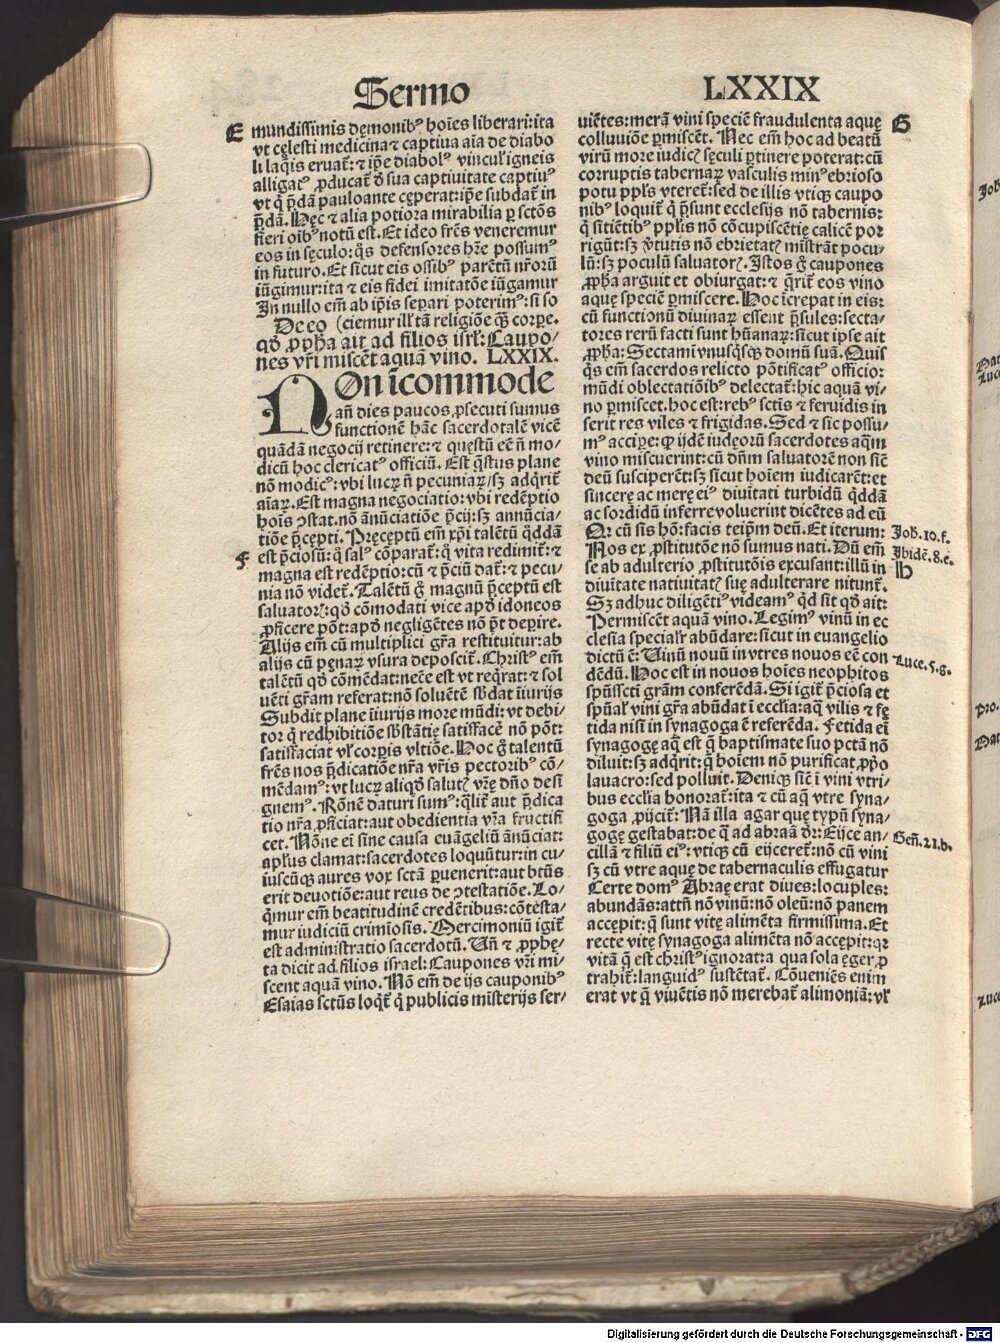 Sermo
LXXIX
E
mundissimis dęmonibꝰ hoīes liberari:ita
vt cęlesti medicina ⁊ captiua aīa de diabo
li laq̄is eruat̄: ⁊ ip̄e diabolꝰ vincul̕ igneis
alligatꝰ ꝓducat̄ ð sua captiuitate captiuꝰ
vt q̄ p̄dā pauloante cęperat:ip̄e subdat̄ in
p̄dā. Hęc ⁊ alia potiora mirabilia ꝑ sctōs
fieri oībꝰ notū est. Et ideo frēs veneremur
eos in sęculo: q̄s defensores hr̄e possumꝰ
in futuro. Et sicut eis ossibꝰ parētū nr̄orū
iūgimur:ita ⁊ eis fidei imitatōe iūgamur
In nullo em̄ ab ip̄is separi poterimꝰ: si so
De eo (ciemur ill̕ tā religiōe q̄ꝫ corpe.
qð ꝓpħa ait ad filios isrl̕: Caupo/
nes vr̄i miscēt aquā vino. LXXIX.
NOn īcommode
an̄ dies paucos ꝓsecuti sumus
functionē hāc sacerdotalē vicē
quādā negocij retinere: ⁊ quęstū eē n̄ mo/
dicū hoc clericatꝰ officiū. Est q̄stus plane
nō modicꝰ: vbi lucꝝ n̄ pecuniaꝝ/ sꝫ adq̄rit̄
aīaꝝ. Est magna negociatio: vbi redēptio
hoīs ꝯstat. nō ānūciatiōe p̄cij: sꝫ annūcia/
tiōe p̄cepti. Pręceptū em̄ xp̄i talētū q̄ddā
F
est p̄ciosū: q̄ salꝰ cōparat̄: q̄ vita redimit̄: ⁊
magna est redēptio: cū ⁊ p̄ciū dat̄: ⁊ pecu/
nia nō videt̄. Talētū g̊ magnū p̄ceptū est
saluatorꝭ: qð cōmodati vice apð idoneos
ꝓficere pōt: apð negligētes nō p̄t depire.
Alijs em̄ cū multiplici gr̄a restituitur: ab
alijs cū pęnaꝝ vsura deposcit̄. Christꝰ em̄
talētū qð cōmēdat: neće est vt req̄rat: ⁊ sol
uēti gr̄am referat: nō soluētē sb̄dat iīurijs
Subdit plane iīurijs more mūdi: vt debi/
tor q̄ redhibitiōe sb̄stātię satisfacē nō pōt:
satisfaciat vl̕ corpis vltiōe. Hoc g̊ talentū
frēs nos p̄dicatiōe nr̄a vr̄is pectoribꝰ cō/
mēdamꝰ: vt lucꝝ aliqð salutꝭ vr̄ę dn̄o desi
gnemꝰ. Rōnē daturi sumꝰ: q̄lit̄ aut p̄dica
tio nr̄a ꝓficiat: aut obedientia vr̄a fructifi
cet. Nōne ei sine causa euāgeliū ānūciat:
apl̄us clamat: sacerdotes loquūtur: in cu/
iuscūqꝫ aures vox sctā ꝑuenerit: aut btūs
erit deuotiōe: aut reus de ꝯtestatiōe. Lo/
q̄mur em̄ beatitudinē credētibus: cōtesta/
mur iudiciū crimiosis. Mercimoniū igit̄
est administratio sacerdotū. Vn̄ ⁊ ꝓphę/
ta dicit ad filios israel: Caupones vr̄i mi/
scent aquā vino. Nō em̄ de ijs cauponibꝰ
Esaias sctūs loq̄t̄ q̄ publicis misterijs ser/
uiētes: merā vini speciē fraudulenta aquę
G
colluuiōe ꝑmiscēt. Nec em̄ hoc ad beatū
virū more iudicꝭ sęculi ꝑtinere poterat: cū
corruptis tabernaꝝ vasculis minꝰ ebrioso
potu ppl̄s vteret̄: sed de illis vtiqꝫ caupo
nibꝰ loquit̄ q̄ p̄sunt ecclesijs nō tabernis:
q̄ sitiētibꝰ pplis̄ nō cōcupiscētię calicē por
rigūt: sꝫ ꝟtutis nō ebrietatꝭ mīstrāt pocu/
lū: sꝫ poculū saluatorꝭ. Istos g̊ caupones
ꝓpħa arguit et obiurgat: ⁊ q̄rit̄ eos vino
aquę speciē ꝑmiscere. Hoc īcrepat in eis:
cū functionū diuinaꝝ essent p̄sules: secta/
tores rerū facti sunt hūanaꝝ: sicut ipse ait
ꝓpħa: Sectamī vnusq̄sqꝫ domū suā. Quis
q̄s em̄ sacerdos relicto pōtificatꝰ officio:
mūdi oblectatiōibꝰ delectat̄: hic aquā vi/
no ꝑmiscet. hoc est: rebꝰ sctīs ⁊ feruidis in
serit res viles ⁊ frigidas. Sed ⁊ sic possu/
mꝰ accipe: qꝫ ijdē iudęorū sacerdotes aq̄m
vino miscuerint: cū dn̄m saluatorē non sic̄
deū susciperēt: sꝫ sicut hoīem iudicarēt: et
sincerę ac merę eiꝰ diuitati turbidū q̄ddā
ac sordidū inferre voluerint dicētes ad eū
Qr̄ cū sis hō: facis teip̄m deū. Et iterum:
Joh. 10. f.
Nos ex ꝓstitutōe nō sumus nati. Dū em̄
Ibidē. 8. e.
se ab adulterio ꝓstitutōis excusant: illū in
H
diuītate natiuitatꝭ suę adulterare nitunt̄.
Sꝫ adhuc diligētiꝰ videamꝰ q̄d sit qð ait:
Permiscēt aquā vino. Legimꝰ vinū in ec
clesia special̕r abūdare: sicut in euangelio
dictū ē: Vinū nouū in vtres nouos eē con
Luce. 5. g.
dēdū. Hoc est in nouos hoīes neophitos
sp̄ussc̄ti gr̄am conferēdā. Si igit̄ p̄ciosa et
sp̄ual̕ vini gr̄a abūdat ī eccl̄ia: aq̄ vilis ⁊ fę
tida nisi in synagoga ē referēda. Fetida eī
synagogę aq̄ est q̄ baptismate suo pctā nō
diluit: sꝫ adq̄rit: q̄ hoīem nō purificat ꝓpo
lauacro: sed polluit. Deniqꝫ sic̄ i vini vtri/
bus eccl̄ia honorat̄: ita ⁊ cū aq̄ vtre syna/
goga ꝓijcit̄: Nā illa agar quę typū syna/
gogę gestabat: de q̄ ad abraā dr̄: Eijce an/
Gen̄. 21. b.
cillā ⁊ filiū eiꝰ: vtiqꝫ cū eijceret̄: nō cū vini
sꝫ cū vtre aquę de tabernaculis effugatur
Certe domꝰ Abraę erat diues: locuples:
abundās: attn̄ nō vinū: nō oleū: nō panem
accepit: q̄ sunt vitę alimēta firmissima. Et
recte vitę synagoga alimēta nō accępit: qꝛ
vitā q̄ est christꝰ ignorat: a qua sola ęger ꝓ
trahit̄: languidꝰ sustētat̄. Cōueniēs enim
erat vt q̄ viuētis nō merebat̄ alimoniā: vl̕
Digitalisierung gefördert durch die Deutsche Forschungsgemeinschaft - DFG